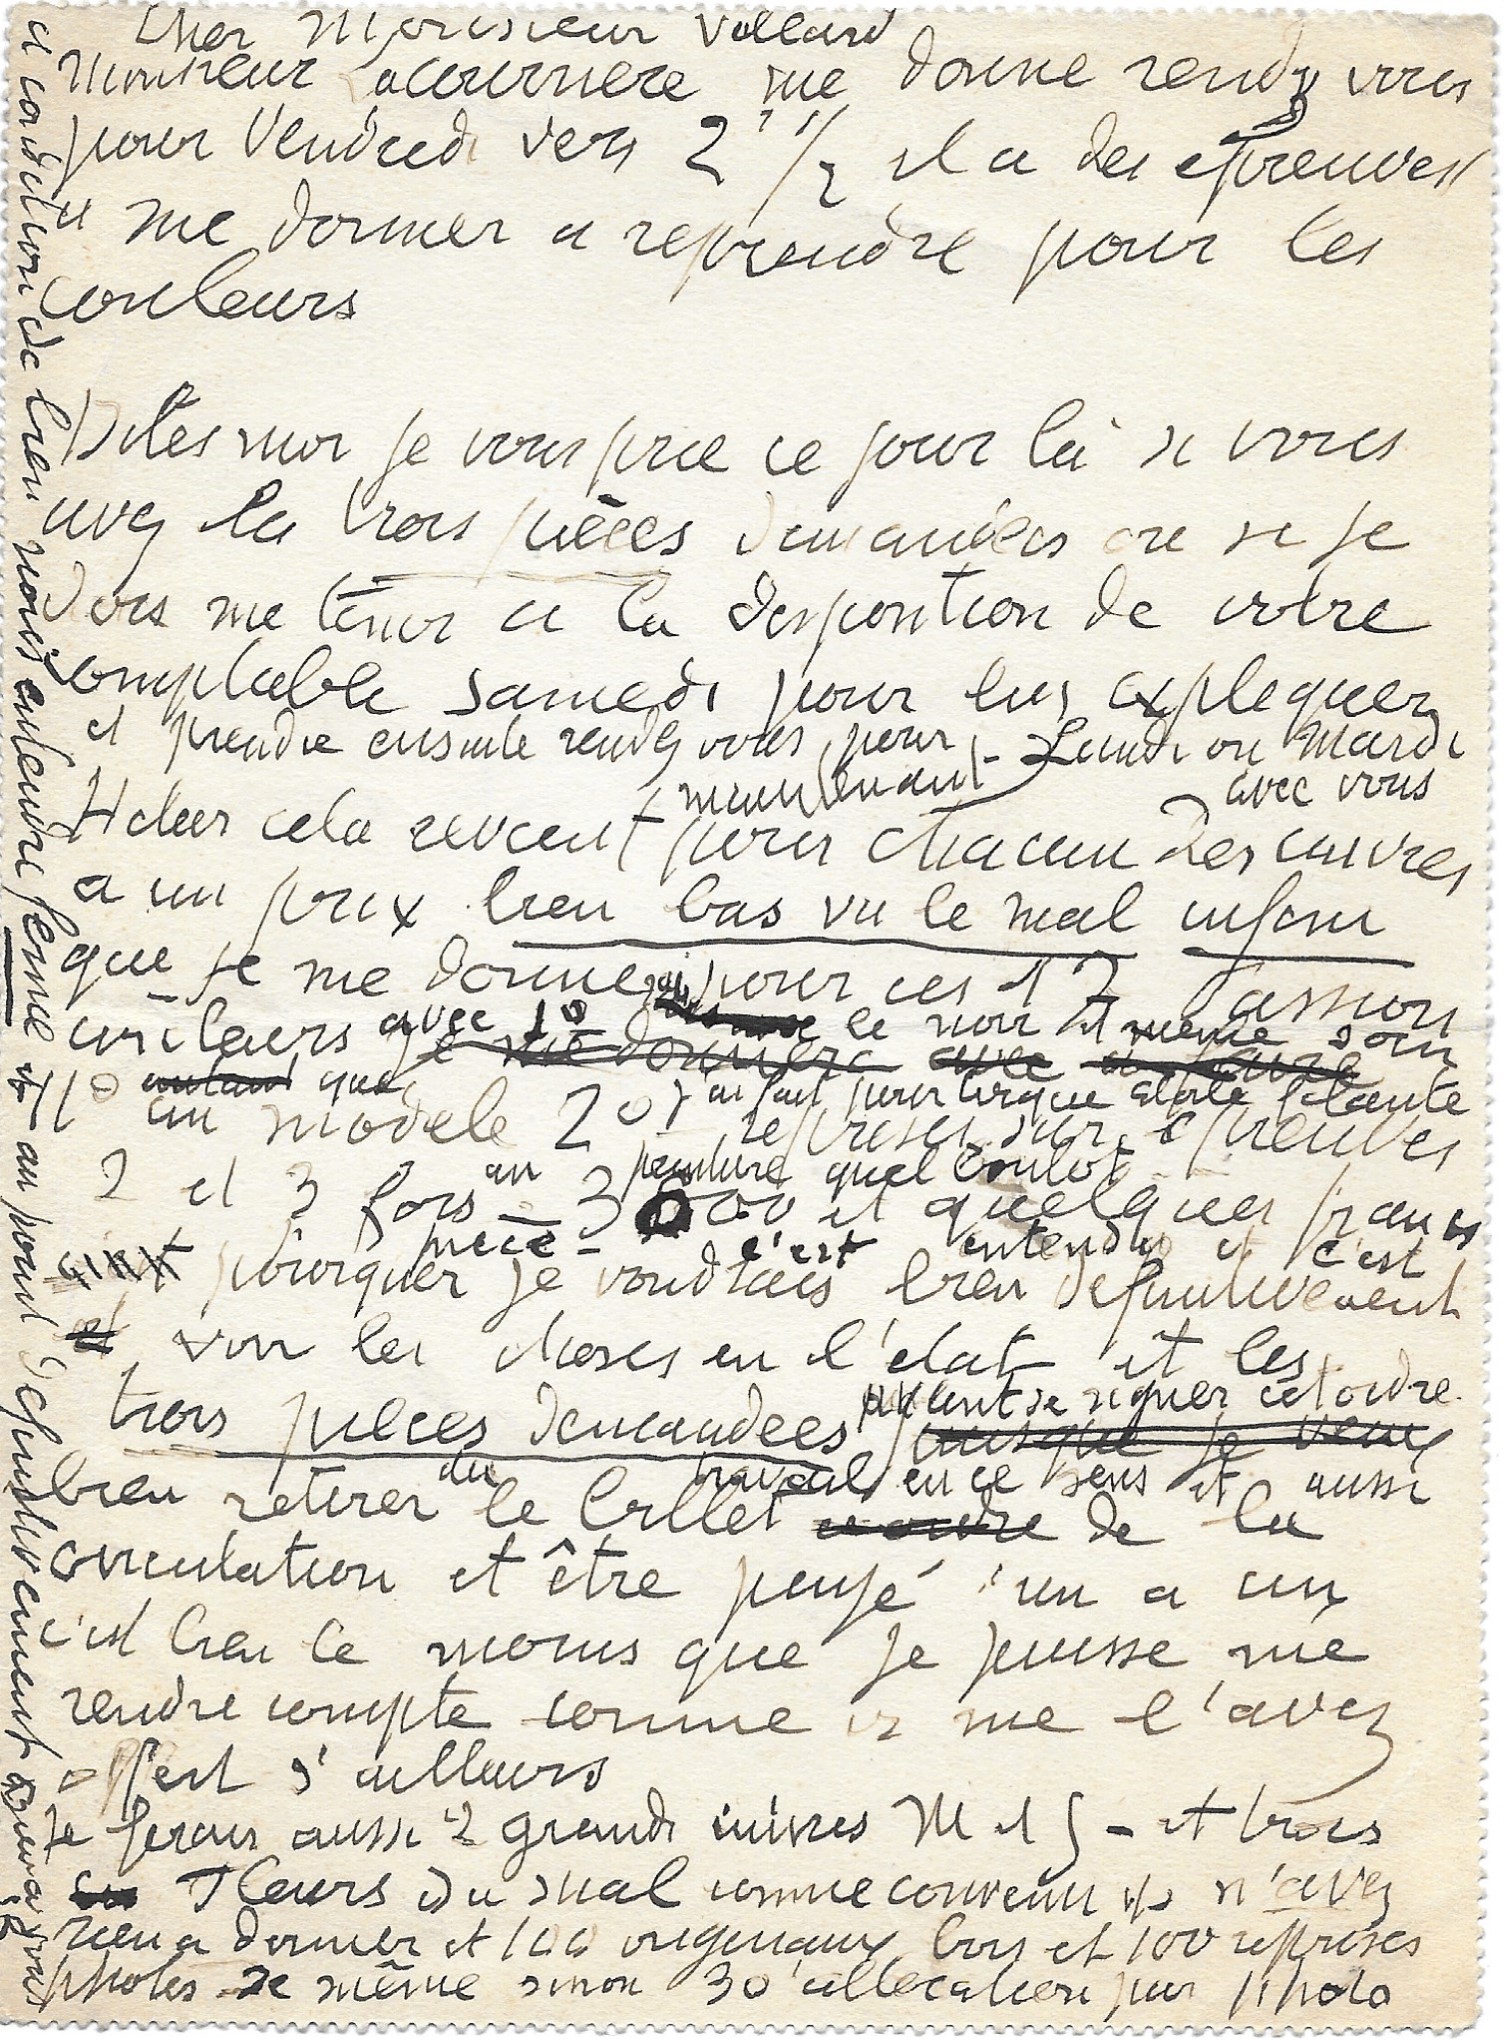 Cher Monsieur Vollard
Monsieur Lacourriere me donne rendz vous
pour Vendredi vers 2 1/2 il a des epreuves
a me donner a reprendre pour les
couleurs
Dites moi je vous prie ce jour là si vous
avez la trois pièces demandées ou si je
dois me tenir a la disposition de votre
comptable samedi pour lui expliquer
et prendre ensuite rendz vous pour Lundi ou Mardi
maintenant avec vous
cela revient pour chacun des cuivres
a un prix bien bas vu le mal
que je me donne pour ces 17 Passion
couleurs avec 10 le noir et même soin
je me donnera avec
10 autant que j'ai fait pour cirque etoile filante
un modele 20 reprises sur epreuves
2 et 3 fois un peinture quel boulot
3 000 et quelques francs
piece c'est entendu et c'est
pourquoi je voudrais bien definitivement
voir les choses en l'etat et les
trois pieces demandees avant de signer cet ordre
puisque je veux
du travail en ce sens et aussi
bien retirer le billet de la
circulation et être payé un a un
c'est bien le moins que je puisse me
rendre compte comme me l'avez
offert d'ailleurs
Je ferais aussi 2 grands cuivres M et G - et trois
Fleurs du mal comme convenu n'avez
rien a donner et 100 originaux bois et 100 reprises
photos de même sinon 30 par photo
a condition de bien nous entendre ferme et au point definitivement